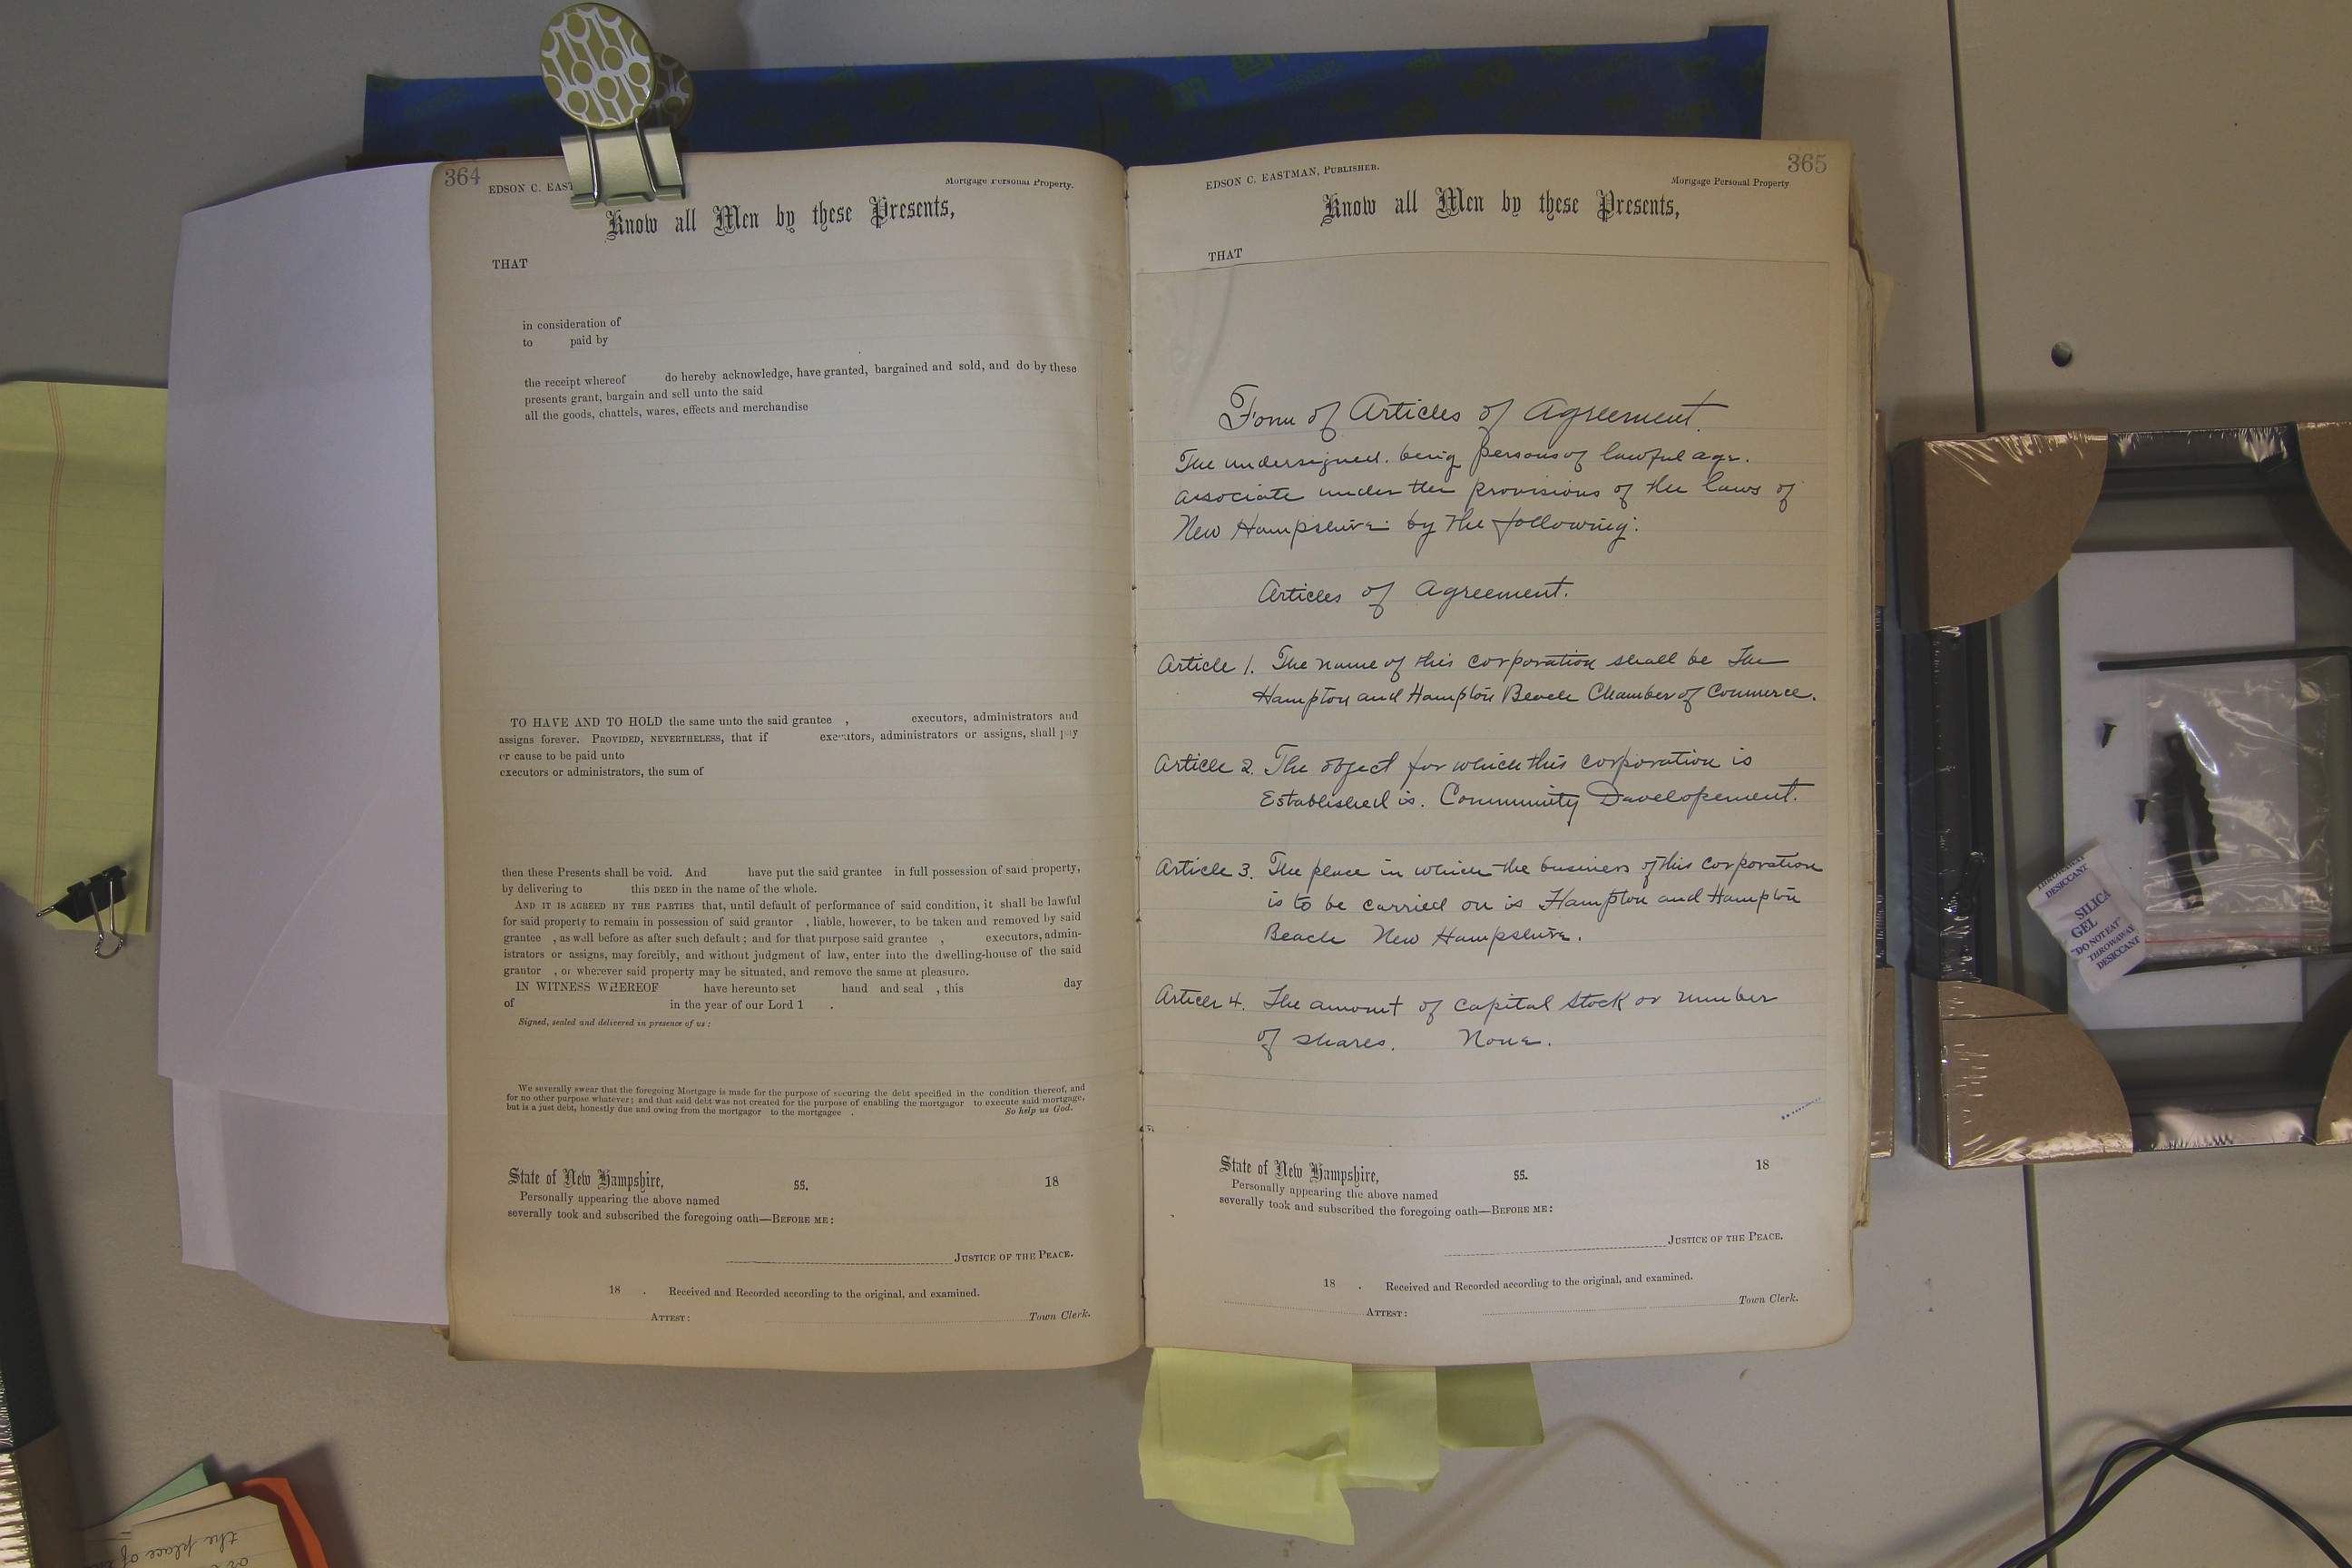 364
EDSON C. EAST
Mortgage Personal Property.
Know all Men by these Presents,
THAT
in consideration of
to paid by
the receipt whereof do hereby acknowledge, have granted, bargained and sold, and do by these
presents grant, bargain and sell unto the said
all the goods, chattels, wares, effects and merchandise
TO HAVE AND TO HOLD the same unto the said grantee , executors, administrators and
assigns forever. PROVIDED, NEVERTHELESS, that if executors, administrators or assigns, shall pay
or cause to be paid unto
executors or administrators, the sum of
then these Presents shall be void. And have put the said grantee in full possession of said property,
by delivering to this DEED in the name of the whole.
AND IT IS AGREED BY THE PARTIES that, until default of performance of said condition, it shall be lawful
for said property to remain in possession of said grantor , liable, however, to be taken and removed by said
grantee , as well before as after such default; and for that purpose said grantee , executors, admin-
istrators or assigns, may forcibly, and without judgment of law, enter into the dwelling-house of the said
grantor , or wherever said property may be situated, and remove the same at pleasure.
IN WITNESS WHEREOF have hereunto set hand and seal , this day
of in the year of our Lord 1 .
Signed, sealed and delivered in presence of us:
We severally swear that the foregoing Mortgage is made for the purpose of securing the debt specified in the condition thereof, and
for no other purpose whatever; and that said debt was not created for the purpose of enabling the mortgagor to execute said mortgage,
but is a just debt, honestly due and owing from the mortgagor to the mortgagee . So help us God.
State of New Hampshire, ss. 18
Personally appearing the above named
severally took and subscribed the foregoing oath—BEFORE ME:
JUSTICE OF THE PEACE.
18 . Received and Recorded according to the original, and examined.
ATTEST: Town Clerk.
365
EDSON C. EASTMAN, PUBLISHER.
Mortgage Personal Property
Know all Men by these Presents,
THAT
Form of Articles of Agreement.
The undersigned. being persons of lawful age.
associate under the provisions of the laws of
New Hampshire by the following:
Articles of Agreement.
Article 1. The name of this corporation shall be The
Hampton and Hampton Beach Chamber of Commerce.
Article 2. The object for which this corporation is
Established is. Community Davelopement.
Article 3. The place in which the business of this corporation
is to be carried on is Hampton and Hampton
Beach New Hampshire.
Article 4. The amount of capital stock or number
of shares. None.
State of New Hampshire, ss. 18
Personally appearing the above named
severally took and subscribed the foregoing oath—BEFORE ME:
JUSTICE OF THE PEACE.
18 . Received and Recorded according to the original, and examined.
ATTEST: Town Clerk.
THROWAWAY
DESICCANT
SILICA
GEL
"DO NOT EAT"
THROWAWAY
DESICCANT
the place of